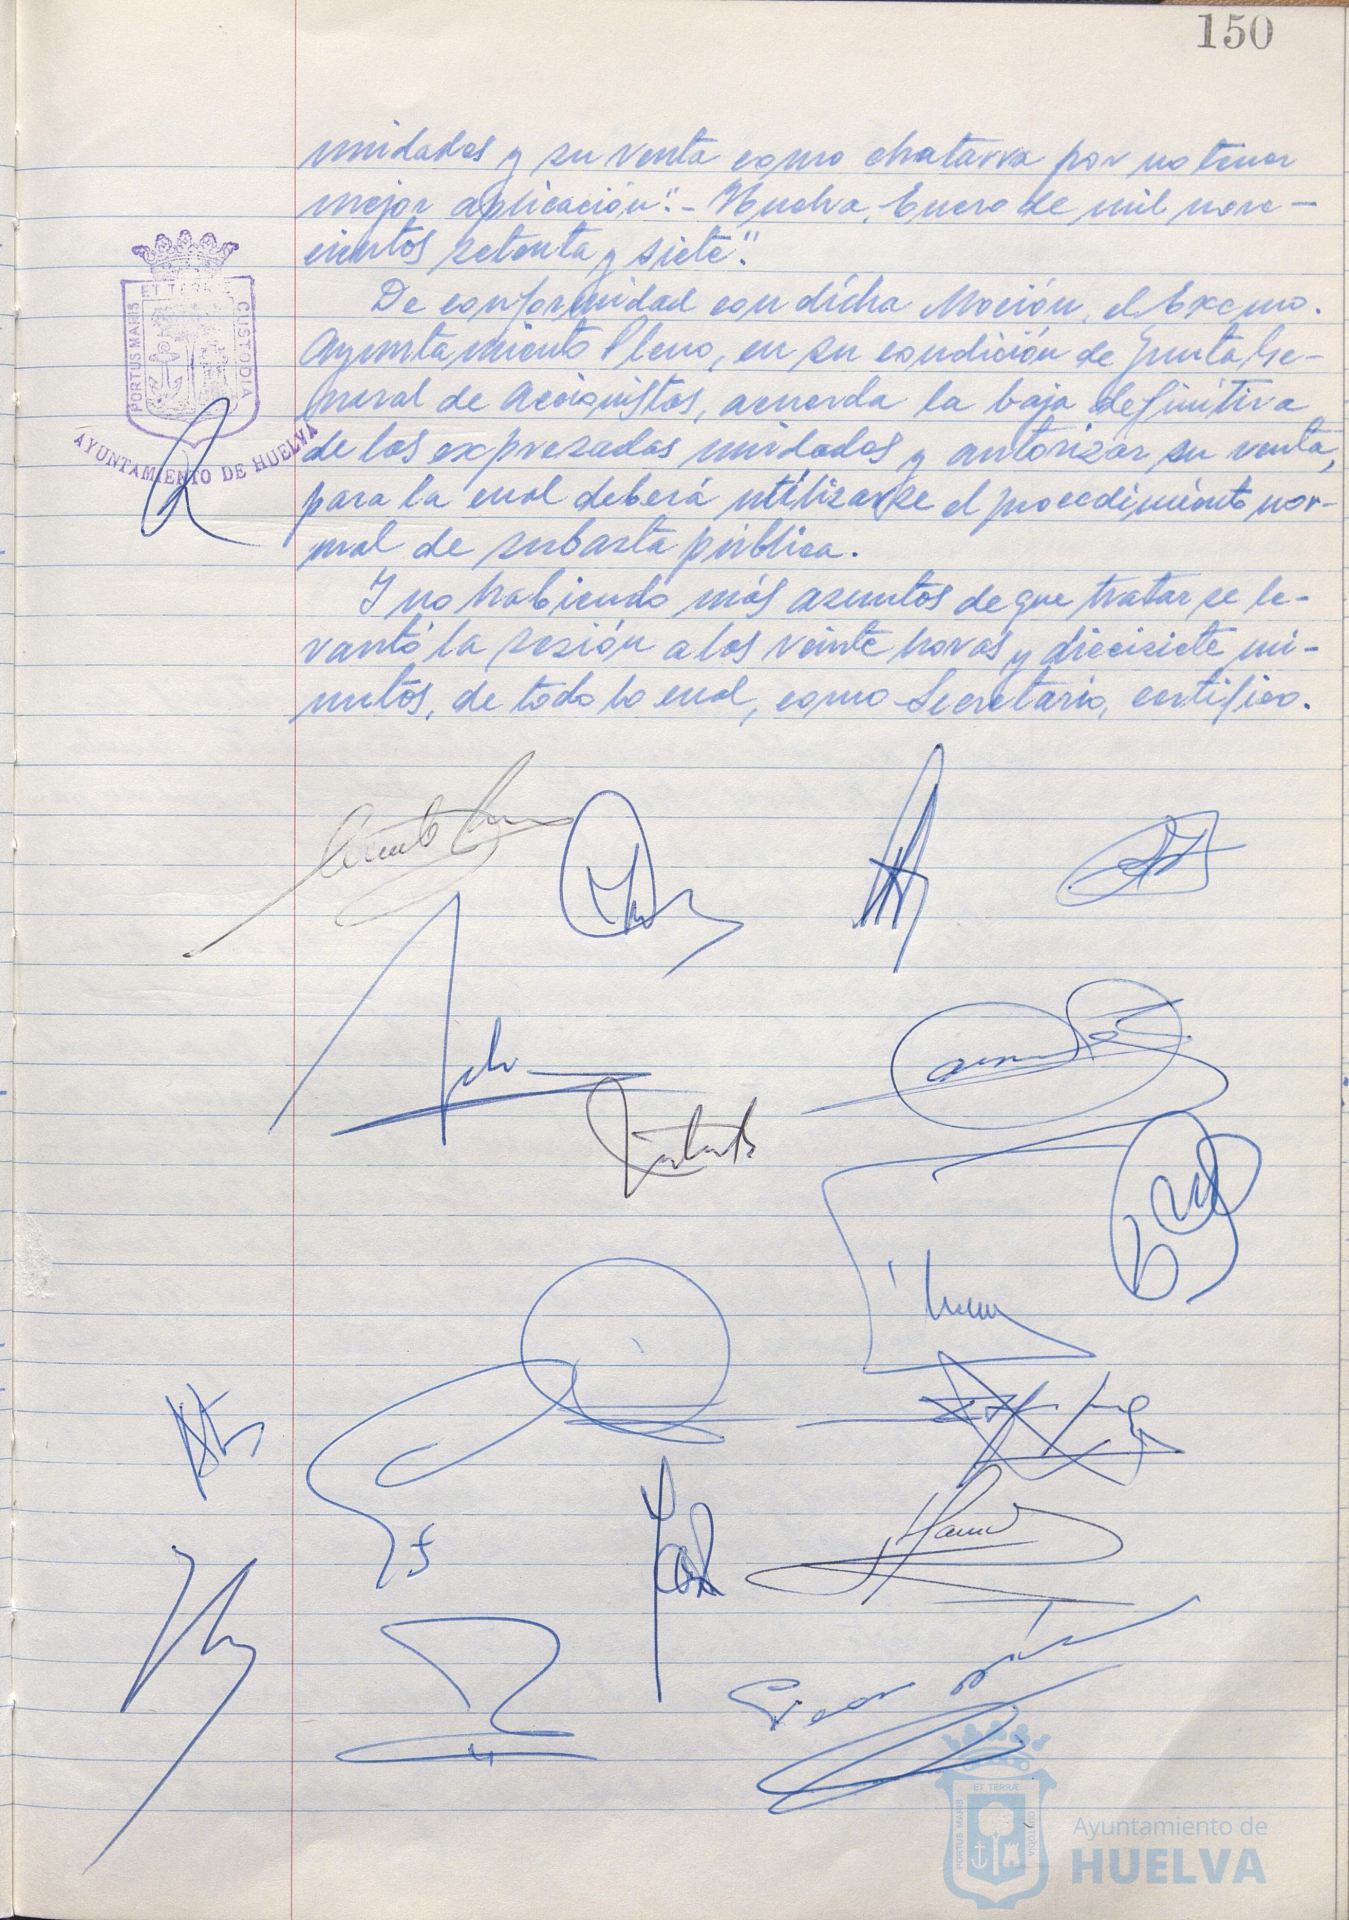 150
unidades y su venta como chatarra por no tener
mejor aplicación".- Huelva, Enero de mil nove-
cientos setenta y siete".
De conformidad con dicha Moción, el Excmo.
Ayuntamiento Pleno, en su condición de Junta Ge-
neral de Accionistas, acuerda la baja definitiva
de las expresadas unidades y autorizar su venta,
para la cual deberá utilizarse el procedimiento nor-
mal de subasta pública.
Y no habiendo más asuntos de que tratar se le-
vantó la sesión a las veinte horas y diecisiete mi-
nutos, de todo lo cual, como Secretario, certifico.
PORTUS MARIS ET TERRAE CUSTODIA
AYUNTAMIENTO DE HUELVA
PORTUS MARIS ET TERRÆ CUSTODIA
Ayuntamiento de
HUELVA